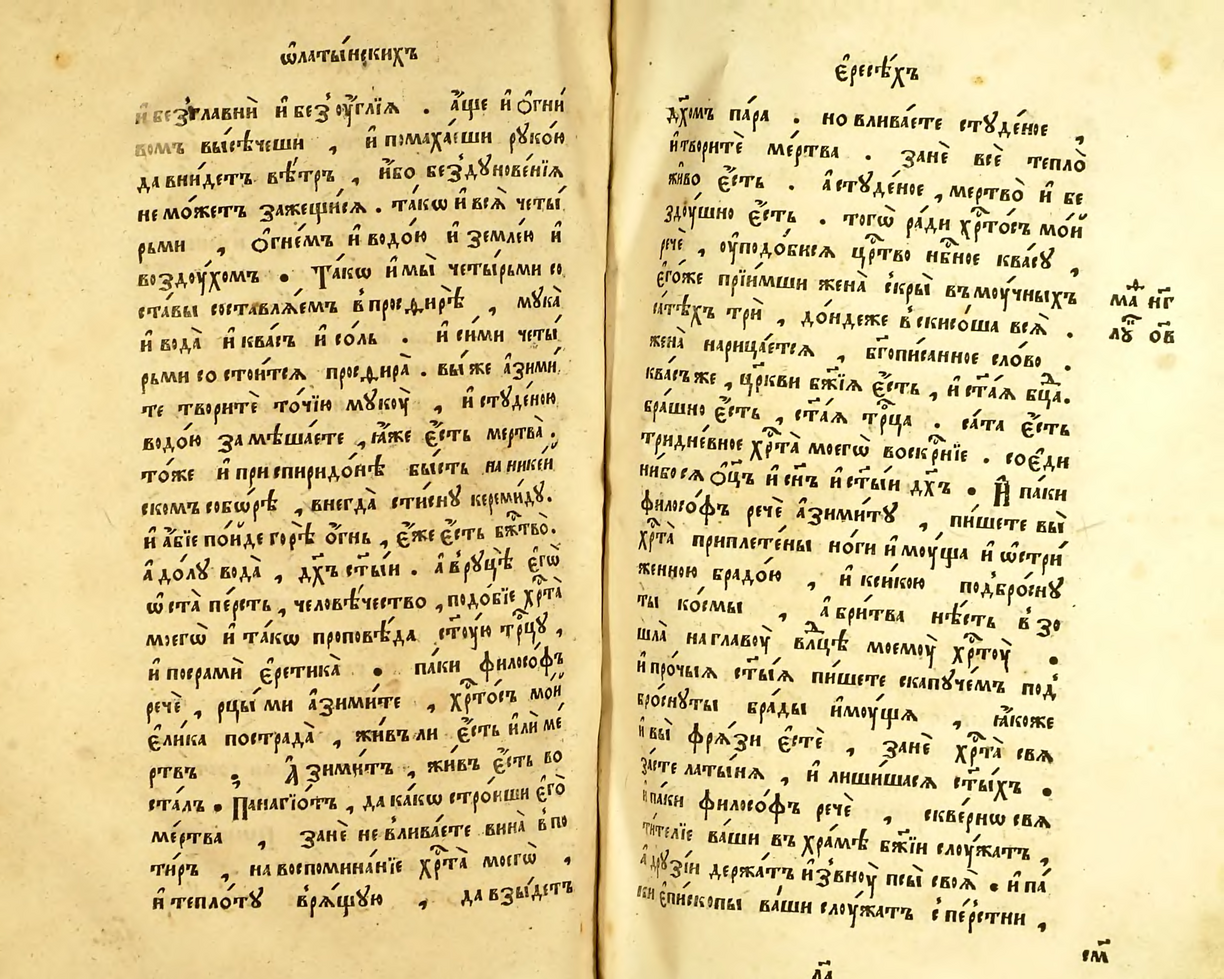 ѡ҆латы́нскихъ
и҆ безглавнѝ и҆ без̾ оу҆́глїѧ . а҆́ще и҆ ѻ҆гни́
вомъ высѣ́чеши , и҆ помаха́еши рꙋко́ю
да вни́детъ вѣ́тръ , и҆́бо бездꙋнове́нїѧ
не мо́жетъ зажещи́сѧ . та́кѡ и҆ всѧ̀ четы́
рьми , ѻ҆гне́мъ и҆ водо́ю и҆ земле́ю и҆
воздоу́хомъ . Та́кѡ и҆ мы̀ четы́рьми со
ста́вы составлѧ́емъ в̾ просѳирѣ̀ , мꙋка̀
и҆ вода̀ и҆ ква́съ и҆ со́ль . и҆ си́ми четы́
рьми состои́тсѧ просѳира̀ . вы́ же а҆зими́
те творитѐ то́чїю мꙋко́ꙋ , и҆ стꙋде́ною
водо́ю замѣша́ете , ꙗ҆́же є҆́сть мертва̀ .
то́же и҆ при спиридо́нѣ бы́сть на нике́й
скомъ собо́рѣ , внегда̀ сти́снꙋ керемі́дꙋ .
и҆ а҆́бїе по́йде горѣ̀ ѻ҆́гнь , є҆́же є҆́сть бж҃тво̀ .
а҆ до́лꙋ вода̀ , дх҃ъ ст҃ы́и . а҆ в̾ рꙋцѣ̀ є҆гѡ̀
ѡ҆ста̀ пе́рсть , человѣ́чество , подо́бїе хрⷭ҇та̀
моегѡ̀ и҆ та́кѡ проповѣ́да ст҃ꙋ́ю трⷪ҇цꙋ ,
и҆ посрамѝ є҆ретика̀ . па́ки филосо́фъ
речѐ , рцы́ ми а҆зими́те , хрⷭ҇то́съ мо́й
є҆ли́ка пострада̀ , жи́въ ли є҆́сть и҆лѝ ме́
ртвъ ; А҆зими́тъ , жи́въ є҆́сть во
ста́лъ . Панагїѡ́тъ , да ка́кѡ стро́иши є҆го̀
ме́ртва , занѐ не влива́ете вина̀ в̾ по
ти́ръ , на воспомина́нїе хрⷭ҇та̀ моегѡ̀ ,
и҆ теплотꙋ̀ врѧ́щꙋю , да взы́детъ
є҆ресѣ́хъ
дх҃омъ па́ра . но влива́ете стꙋде́ное ,
и҆ творитѐ ме́ртва . занѐ всѐ тепло̀
жи́во є҆́сть . а҆ стꙋде́ное , мертво̀ и҆ бе
здоу́шно є҆́сть . тогѡ̀ ра́ди хрⷭ҇то́съ мо́й
речѐ , оу҆подо́бисѧ црⷭ҇тво нбⷭ҇ное ква́сꙋ ,
є҆го́же прїи́мши жена̀ скры̀ въ моу́чныхъ
са́тѣхъ трѝ , до́ндеже в̾скисо́ша всѧ̀ .
жена̀ нарица́етсѧ , бг҃опи́санное сло́во .
ква́съ же , цр҃кви бж҃їѧ є҆́сть , и҆ ст҃а́ѧ бцⷣа .
бра́шно є҆́сть , ст҃а́ѧ трⷪ҇ца . са́та є҆́сть
тридне́вное хрⷭ҇та̀ моегѡ̀ воскрⷭ҇нїе . соє҆ди
ни́бо сѧ ѻ҆ц҃ъ и҆ сн҃ъ и҆ ст҃ы́и дх҃ъ . И҆ па́ки
филосо́фъ речѐ а҆зими́тꙋ , пи́шете вы̀
хрⷭ҇та̀ приплете́ны но́ги и҆мꙋ́ща и҆ ѡ҆стри́
женною брадо́ю , и҆ ксикою подбро́снꙋ
ты ко́смы , а҆ бри́тва нѣ́сть в̾зо
шла̀ на главоу̀ влⷣцѣ моемоу̀ хрⷭ҇тоу̀ .
и҆ про́чыѧ ст҃ы́ѧ пи́шете скапꙋче́мъ под̾
бро́снꙋты бра́ды и҆моу́щѧ , ꙗ҆́коже
и҆ вы̀ фрѧ́зи є҆стѐ , занѐ хрⷭ҇та̀ свѧ
за́сте латы́нѧ , и҆ лиши́шасѧ ст҃ы́хъ .
и҆ па́ки филосо́фъ речѐ , скве́рнѡ свѧ
ти́телїе ва́ши въ хра́мѣ бж҃їи слоу́жатъ ,
а҆ дрꙋзі́и держа́тъ и҆звноу̀ псы̀ своѧ̀ . и҆ па́
ки є҆пи́скопы ва́ши слоу́жатъ с̾ пе́рстни ,
маⷴ҇ нг҃
лꙋⷦ҇ ов҃
см҃